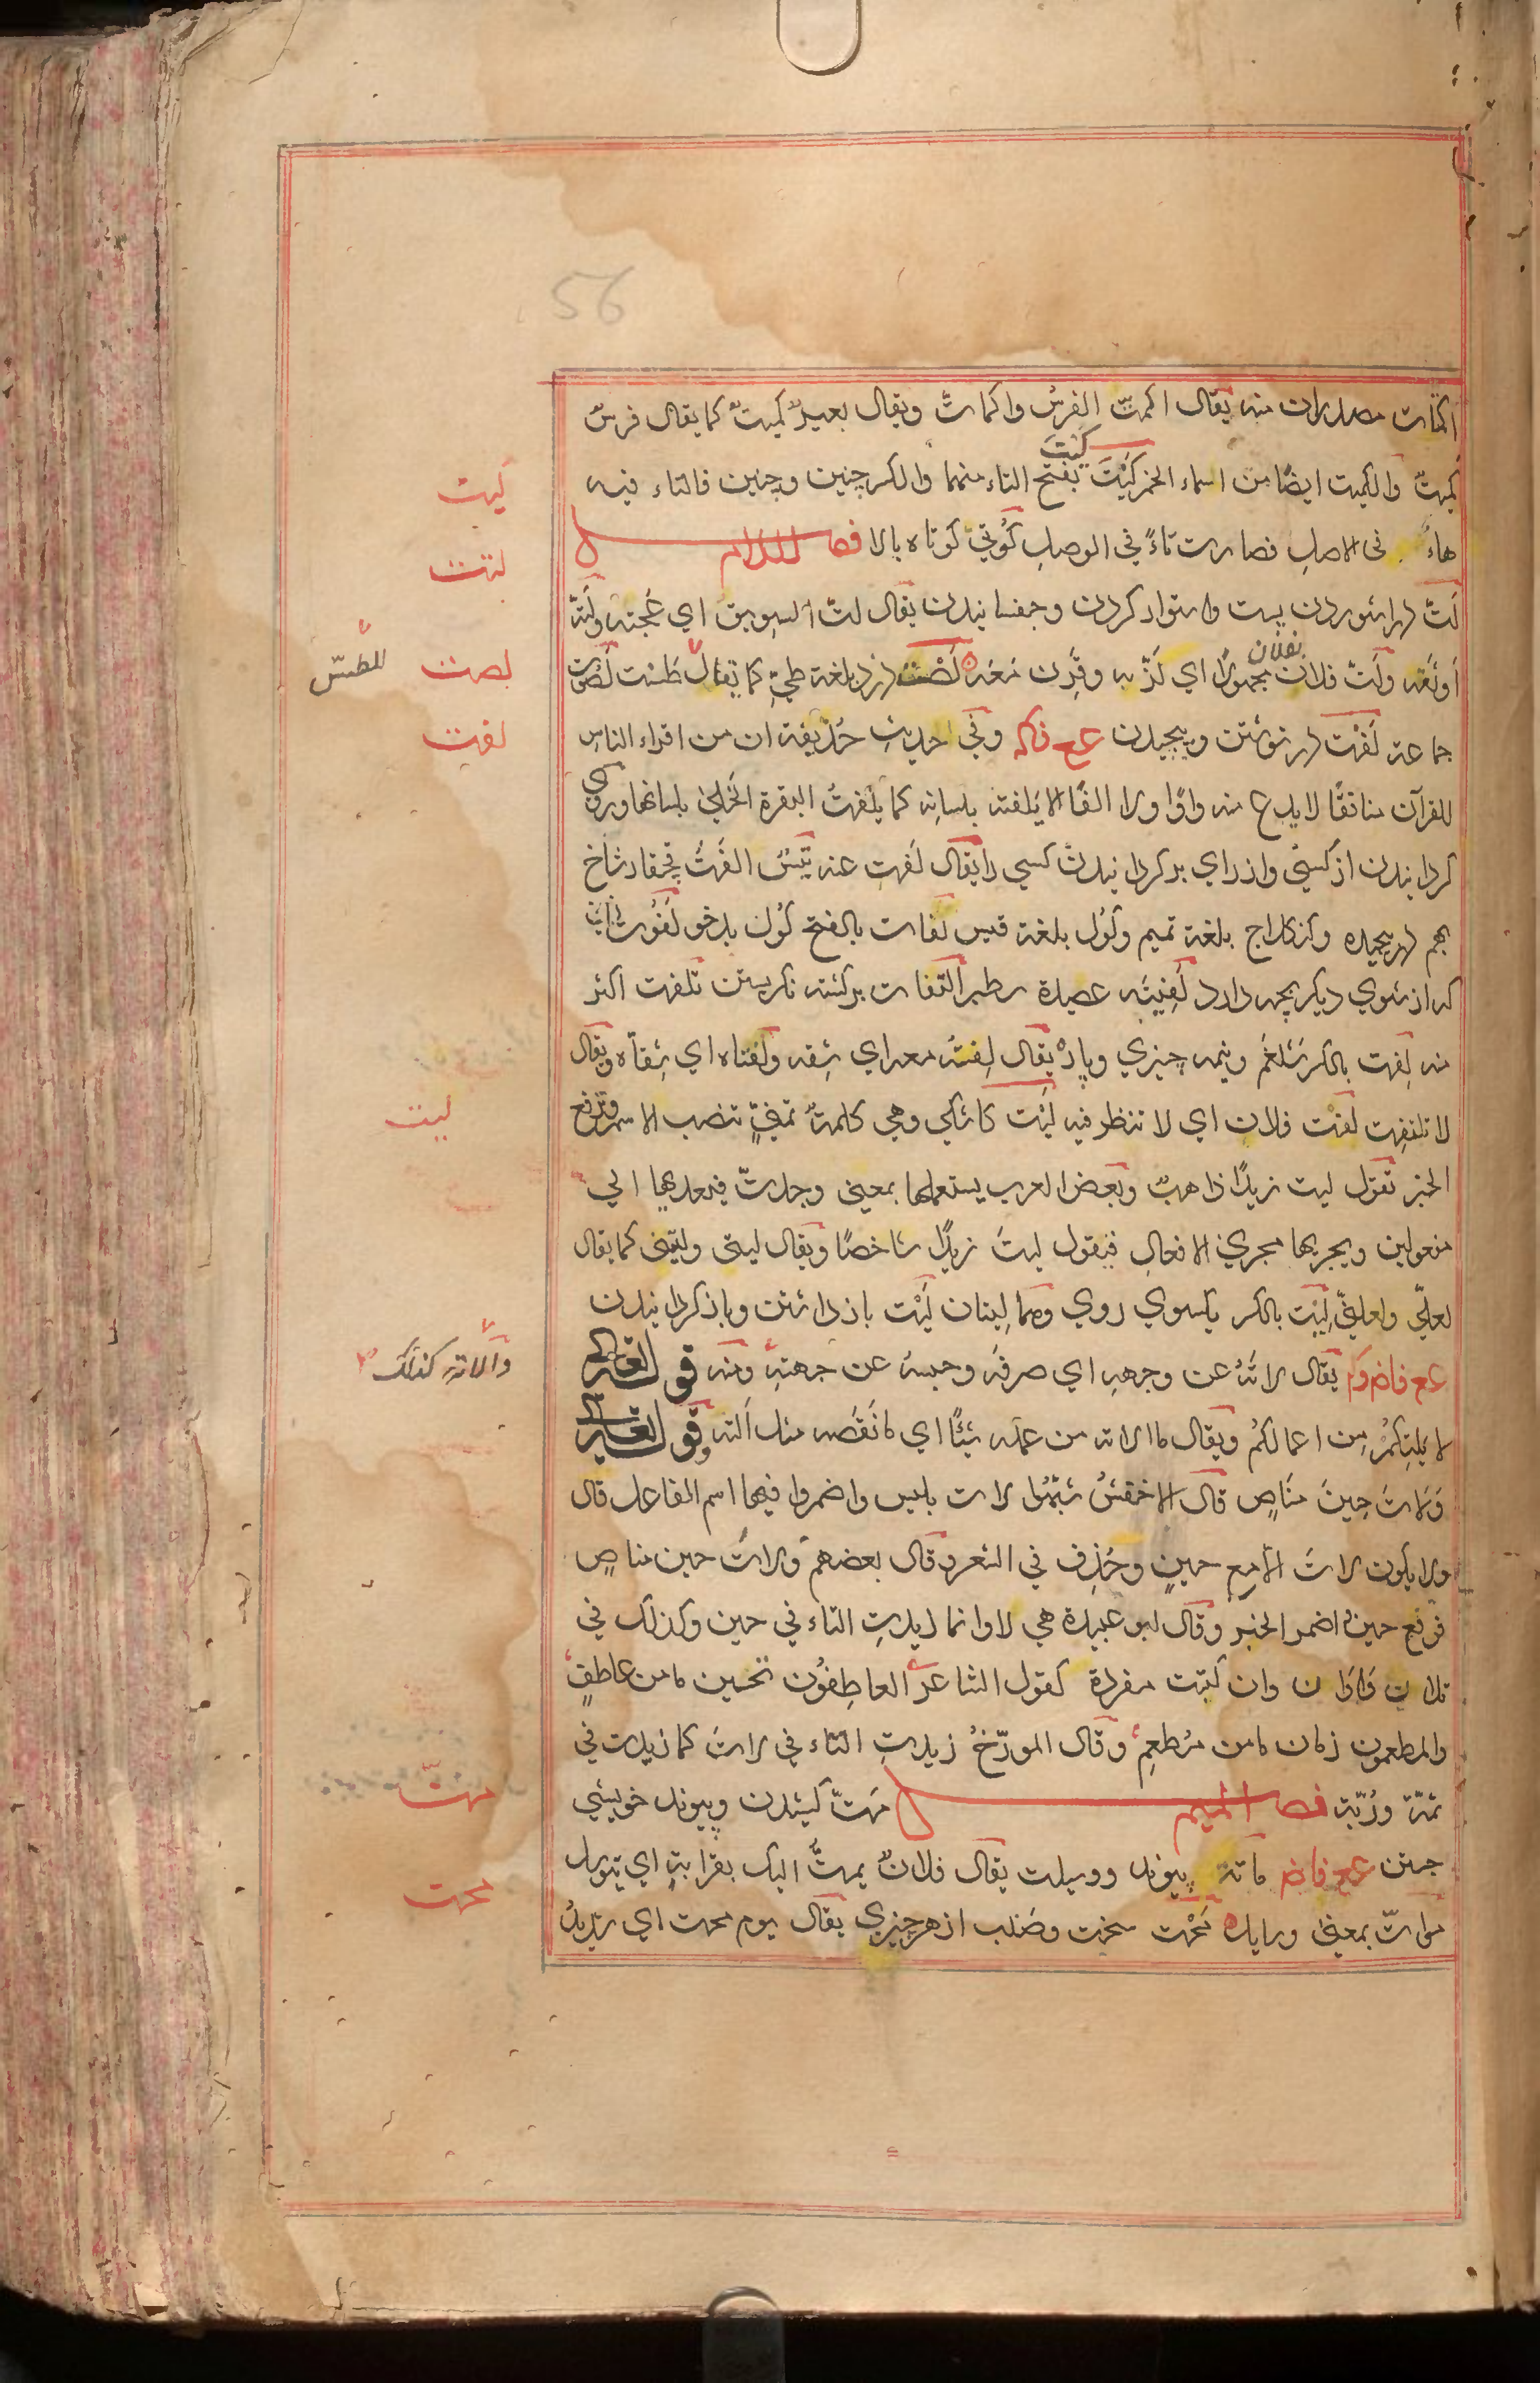 56
اكمتات مصدران منه يقال اكمتّ الفرسُ واكماتّ ويقال بعيرٌ كميتٌ كما يقال فرسٌ
كميتٌ والكميت ايضًا من اسماء الخمر كَيْتَ كَيْتَ بفتح التاء منهما والكسر چنين وچنين فالتاء فيه
هاءٌ فى الاصل فصارت تاءً في الوصل كُوتيّ كوتاه بالا فصل اللام
لَتّ در شوردن پست واستوار كردن وجفسانيدن يقال لتّ السويق اي عجنه ولتّه
اوثقه ولُتّ فلان بفلان مجهولًا اي لُزّ به وقُرِن معه لَصْت دزد بلغة طيّ كما يقال طست لصوت
جماعة لَفْت در نوشتن وپيچيدن ع ع وفي حديث حُذيفة ان من اقراء الناس
للقرآن منافقًا لايدع منه واوًا ولا الفًا الا يلفته بلسانه كما يلفت البقرة الخلى بلسانها وروي
كردانيدن از كسي واز راي بركردانيدن كسي را يقال لفت عنه تيسٌ الفَتُ شاخ
بهم در پيچيده وكژكلاج بلغة تميم وكَول بلغة قيس لَفات بالفتح كول بدخو لَفُوت زني
كه از شوي ديكر بچه دارد لَفِيتَه عصيدة سطبر التفات بركشته نكريستن تلفت اكثر
منه لِفت بالكسر شلغم ونيمه چيزي ويقال لِفتُه معه اي شِقه ولفتاه اي شقاه ويقال
لا تلتفت لفت فلان اي لا تنظر فيه لَيْت كاشكي وهي كلمة تمنٍّ تنصب الاسم وترفع
الخبر تقول ليت زيدًا ذاهبٌ وبعض العرب يستعملها بمعنى وجدتّ فيعديها الى
مفعولين ويجريها مجرى الافعال فيقول ليتَ زيدًا شاخصًا ويقال ليتى وليتنى كما يقال
لعلّي ولعلنيّ لِيت بالكسر يكسوي روي وهما لِيتان لَيْت باز داشتن وباز كردانيدن
ع ع يقال لاتَهُ عن وجهه اي صرفَه وحبسه عن جهته ومنه قوله تعالى
لا يَلِتكمْ من اعمالكُم ويقال ما الاته من عمله شيئًا اي ما نَقَصه مثل اَلته وقوله تعالى
وَلاتَ حِينَ مَنَاصٍ قال الاخفش شَبّهُوا لات بليس واضمروا فيها اسم الفاعل قال
ولا يكون لاتَ الا مع حينٍ وحُذِف في الشعر وقال بعضهم ولاتَ حين مناصٍ
فرفع حينُ اضمر الخبر وقال ابو عبيدة هي لا وانما زيدتِ التاء في حين وكذلك في
تلان واوان وان كتبت مفردة كقول الشاعر العاطِفُون تحين ما من عاطفٍ
والمطعمون زمان ما من مُطعِمِ وقال المورّخُ زيدتِ التاء في لاتَ كما زيدت في
ثمّة ورُبّة فصل الميم مَتّ كشيدن وپيوند خويشي
جستن ع ع ماتة پيوند ووسيلت يقال فلانٌ يمتُّ اليك بقرابةٍ اي يتوسل
مواتّ بمعنى ورايك مَحْت سخت وصُلب از هر چيزي يقال يوم محت اي شديد
كيت
لتت
لصت
للطسّ
لفت
ليت
وآلاته كذلك
متّ
محت